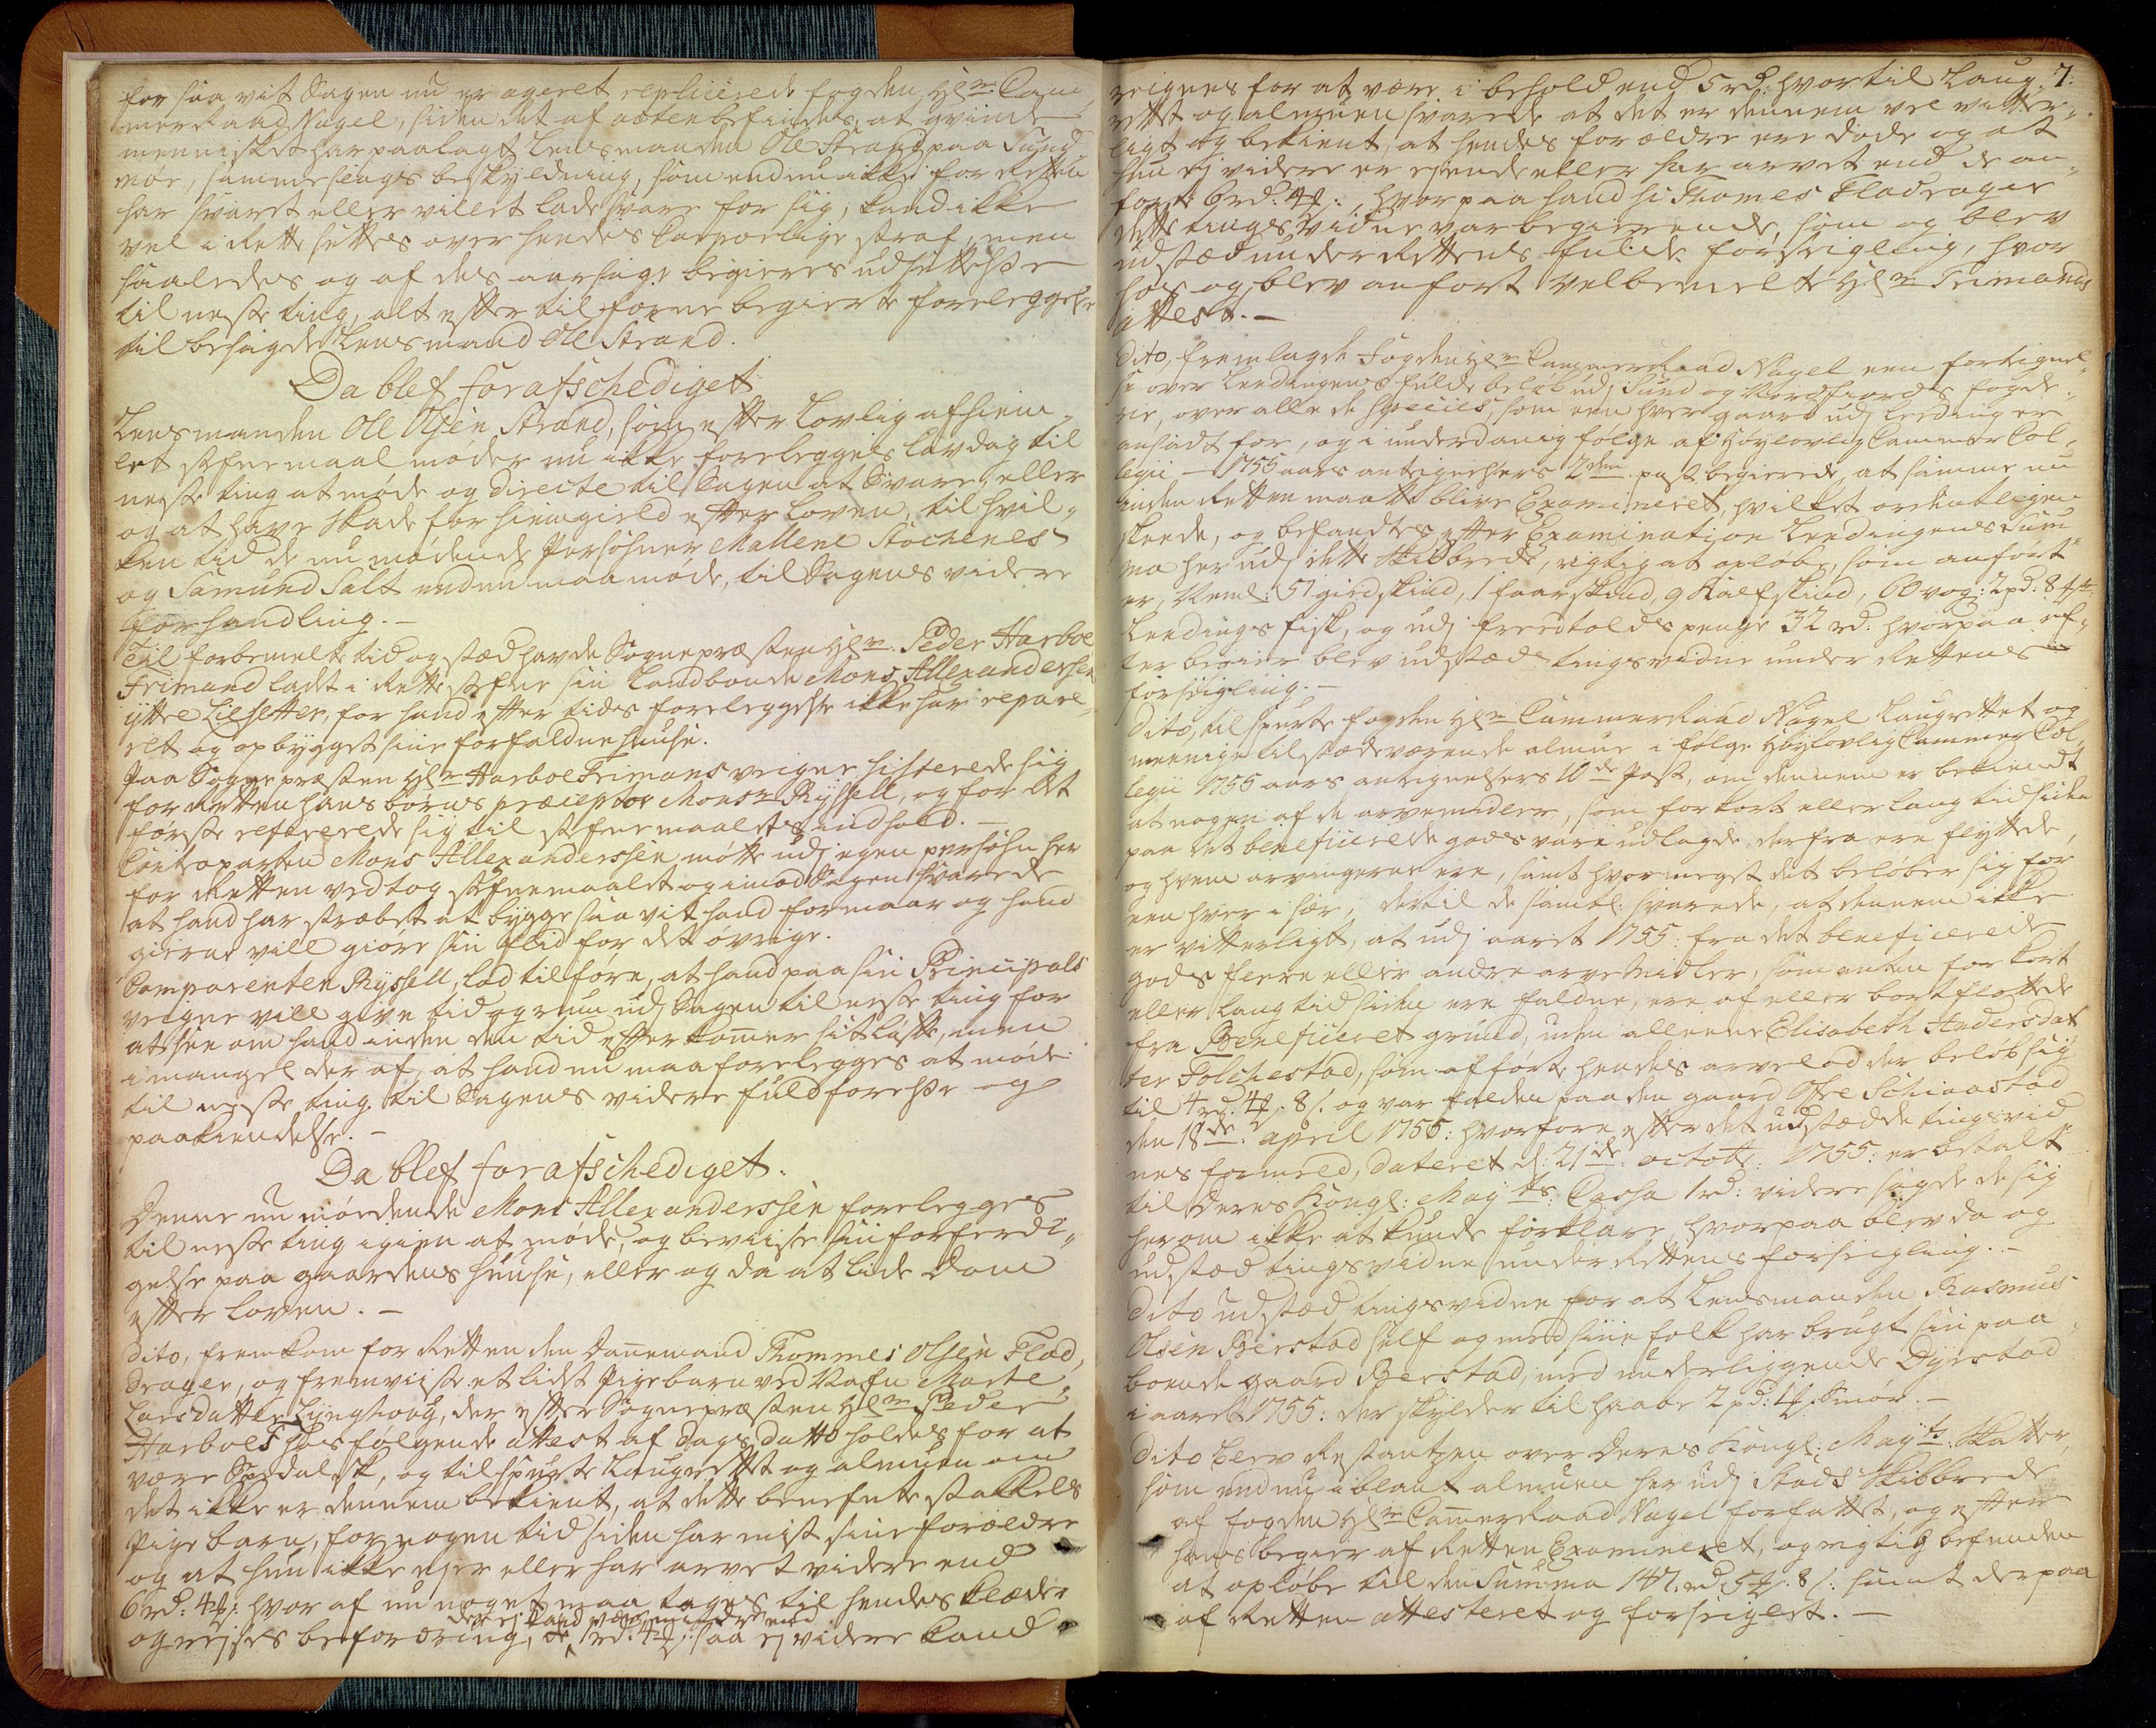 for saa vit Sagen nu er ageret replicerede fogden Hl:r Cam
merRaad Nagel, siden det af acten befindes, at qvinde
mennisket har paalagt Lensmanden Ole Strand paa Sund
mør, samme slags beskyldning, som endnu ikke for Retten
har svaret eller villet lade svare for sig, kand ikke
vel i Rette settes over hendes Corporlige straf, men
saaledes og af des aarsage begieres udsettelse
til neste ting, alt efter til forne begierte foreleggelse
til besagde Lensmand Ole Strand.
Da blef forafschediget
Lensmanden Ole Olsen Strand, som efter Lovlig afhiem„
let stefnemaal møder nu ikke forelegges lavdag til
neste ting at møde og directe til Sagen at Svare, eller
og at have Skade for hiemgield efter Loven, til hvil„
ken tid de nu mødende Persohner Mallene Stochenes
og Samund Salt endnu maa møde, til Sagens videre
forhandling.—
Til forbemelte tid og stæd havde Sognepræsten Hl:r Peder Harboe
Frimand ladet i Rette stefne sin Landbonde Mons Allexandersen
ytre Liesetter, for hand efter tides foreleggelse ikke har repare„
ret og opbygget sine forfaldne huuse.
Paa Sogne præsten Hl:r Harboe Frimans veigne sisterede sig
for Retten hans børns præceptor Mons:r Ryssell, og for det
første refererede sig til stefnemaalets indhold.—
Contraparten Mons Allexanderssen møtte udj egen persohn her
for Retten vedtog stefnemaalet og imod Sagen svarede
at hand har strebet at bygge saa vit hand formaar og hand
gierne vill giøre sin flid for det øvrige.
Comparenten Ryssell, lod tilføre, at hand paa sin Principals
veigne vill give tid og rum udj Sagen til neste ting for
at see om hand inden den tid efterkomer sit løfte, men
i mangel der af, at hand nu maa forelegges at møde
til neste ting til Sagens videre fuldførelse og
paakiendelse.—
Da blef forafschediget.
Denne nu mødende Mons Allexanderssen forelegges
til neste ting igien at møde, og beviise sin forferdi„
gelse paa gaardens huuse, eller og da at lide Dom
efter loven.—
Dito, fremkom for Retten den Dannemand Thommes Olsen Flad,
drager, og fremviiste et lidet Pigebarn ved Nafn Marte
Larsdatter Lynghoug, der efter Sognepræsten Hl:r Peder
Harboes hos følgende attest af dags datto holdes for at
være Spedalsk, og tilspurte Laugrettet og almuen om
det ikke er dennem bekient, at dette benefnte stakkels
Pige barn, for nogen tid siden har mist sine forældre
og at hun ikke eyer eller har arvet videre end
6 rd: 4 ß: hvor af nu noget maa tages til hendes klæder
der ej kand være mindre end
og rejses befordring, 1 rd: 4 ß: saa ej videre kand
7.
reignes for at være i behold end 5 rd: hvortil Laug„
rettet og almuen svarede at det er dennem vel vitter„
ligt og bekient, at hendes forældre ere døde og at
hun ej videre er ejende eller har arvet end de an„
førte 6 rd: 4 ß:, hvorpaa hand hr. Thomes Fladrager
dette tings vidne var begierende, som og blev
udstæd under Rettens fulde forseigling, hvor
hos og blev anført velbemelte Hl:r Frimands
attest.—
Dito, fremlagde Fogden Hl:r CammerRaad Nagel een fortegnel„
se over Leedingens fulde beløb udj Sund og Nordfiords fogde„
rie, over alle de Species, som een hver gaard udj Leeding er
ansadt for, og i underdanig følge af Høylovlig Cammer Col„
legii — 1755 aars antegnelsers 2den post begierede, at samme nu
inden Retten maatte blive Examineret, hvilket ordentligen
skeede, og befandtes efter Examination Leedingens Sum„
ma her udj dette Skibbrede, rigtig at opløbe som anført
er, Neml: 51 giedskind, 1 faarskind, 9 Kalfskind, 60 vog: 2 pd: 8 ℔
Leedings fisk, og udj freedtolds penge 32 rd: hvorpaa ef„
ter begier blev udstæd tingsvidne under Rettens
forseigling.—
Dito, til spurte fogden Hl:r CammerRaad Nagel Laugrettet og
meenige tilstædeværende almue i følge Høylovlig Cammer Col„
legii 1755 aars antegnelsers 10de Post, om dennem er bekiendt
at nogen af de arvemidler, som for kort eller lang tid siden
paa det beneficerede gods vare udlagde, derfra ere flyttede,
og hvem arvingerne ere, samt hvor meget det beløber sig for
een hver i sær, dertil de samtl. svarede, at dennem ikke
er vitterligt, at udj aaret 1755: fra det beneficerede
gods fleere eller andre arvemidler, som enten for kort
eller lang tid siden ere faldne, ere af eller bortflottede
fra Beneficeret grund, uden alleene Elisabeth Andersdat
ter Folchestad, som afførte hendes arvelod der beløb sig
til 4 rd: 4 ß: 8 s. og var falden paa den gaard Ofre Schiaastad
den 18de april 1755: hvorfore efter det udstædde tingsvid
nes formeld, dateret d: 21de octobr: 1755: er betalt
til Deres Kongl: Mayts: Cassa 1 rd: videre sagde de sig
herom ikke at kunde forklare, hvorpaa blev da og
udstæd tingsvidne under Rettens forseigling.—
Dito udstæd tingsvidne for at Lensmanden Rasmus
Olsen Berstad self og med sine folk har brugt sin paa
boende gaard Berstad, med underliggende Dyrstad
i aaret 1755: der skylder til haabe 2 pd: 1 ß: Smør.—
Dito blev Restantzen over Deres Kongl: Mayts: Skatter,
som endnu iblant almuen her udj Stads Skibbrede
af fogden Hl:r CammerRaad Nagel forfattet, og efter
hans begier af Retten Examineret, og rigtig befunden
at opløbe til den Summa 147. rd: 5 ß: 8 s: samt derpaa
af Retten attesteret og forseiglet.—